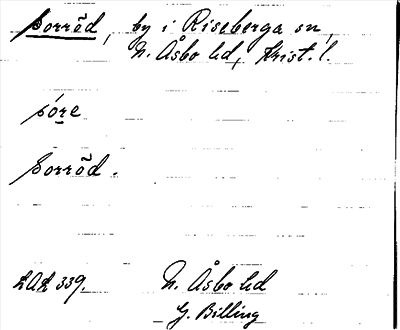 Sorrõd, by i Riseberga sn,
N. Åsbo hd, Krist. l.
sóre
Sorrõd.
LAL 339.
N. Åsbo hd
G. Billing